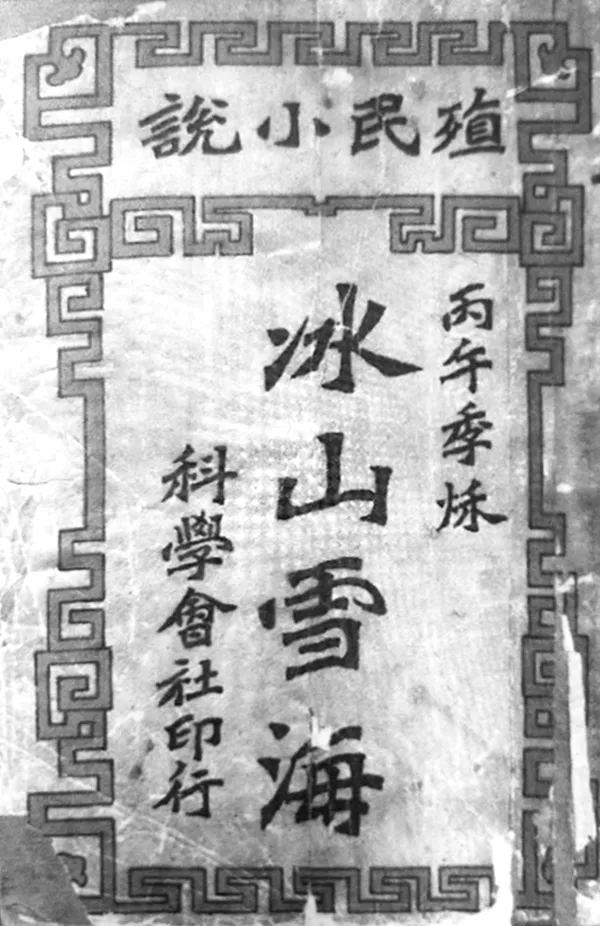 殖民小說
丙午季秌
冰山雪海
科學會社印行